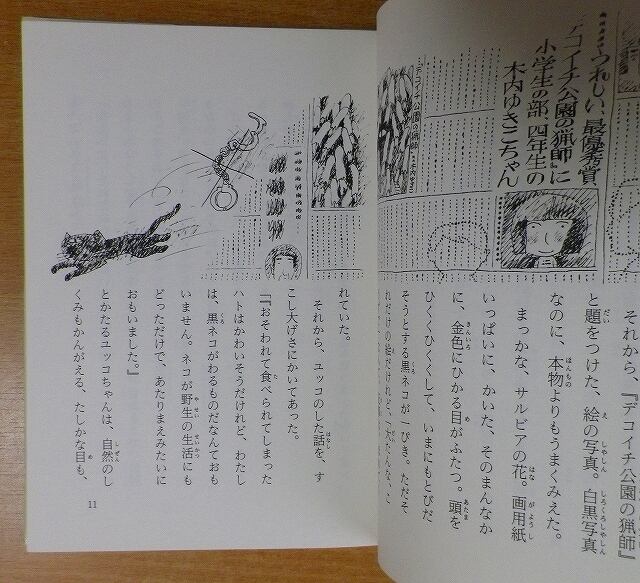 うれしい、最優秀賞
『デコイチ公園の猟師』に
小学生の部、四年生の
木内ゆきこちゃん
デコイチ公園の猟師
それから、『デコイチ公園の猟師』
と題をつけた、絵の写真。白黒写真
なのに、本物よりもうまくみえた。
まっかな、サルビアの花。画用紙
いっぱいに、かいた、そのまんなか
に、金色にひかる目がふたつ。頭を
ひくくひくくして、いまにもとびだ
そうとする黒ネコが一ぴき。ただそ
れだけの絵だけれど、
れていた。
それから、ユッコのした話を、す
こし大げさにかいてあった。
『おそわれて食べられてしまった
ハトはかわいそうだけれど、わたし
は、黒ネコがわるものだなんておも
いません。ネコが野生の生活にも
どっただけで、あたりまえみたいに
おもいました。』
とかたるユッコちゃんは、自然のし
くみもかんがえる、たしかな目も、
11